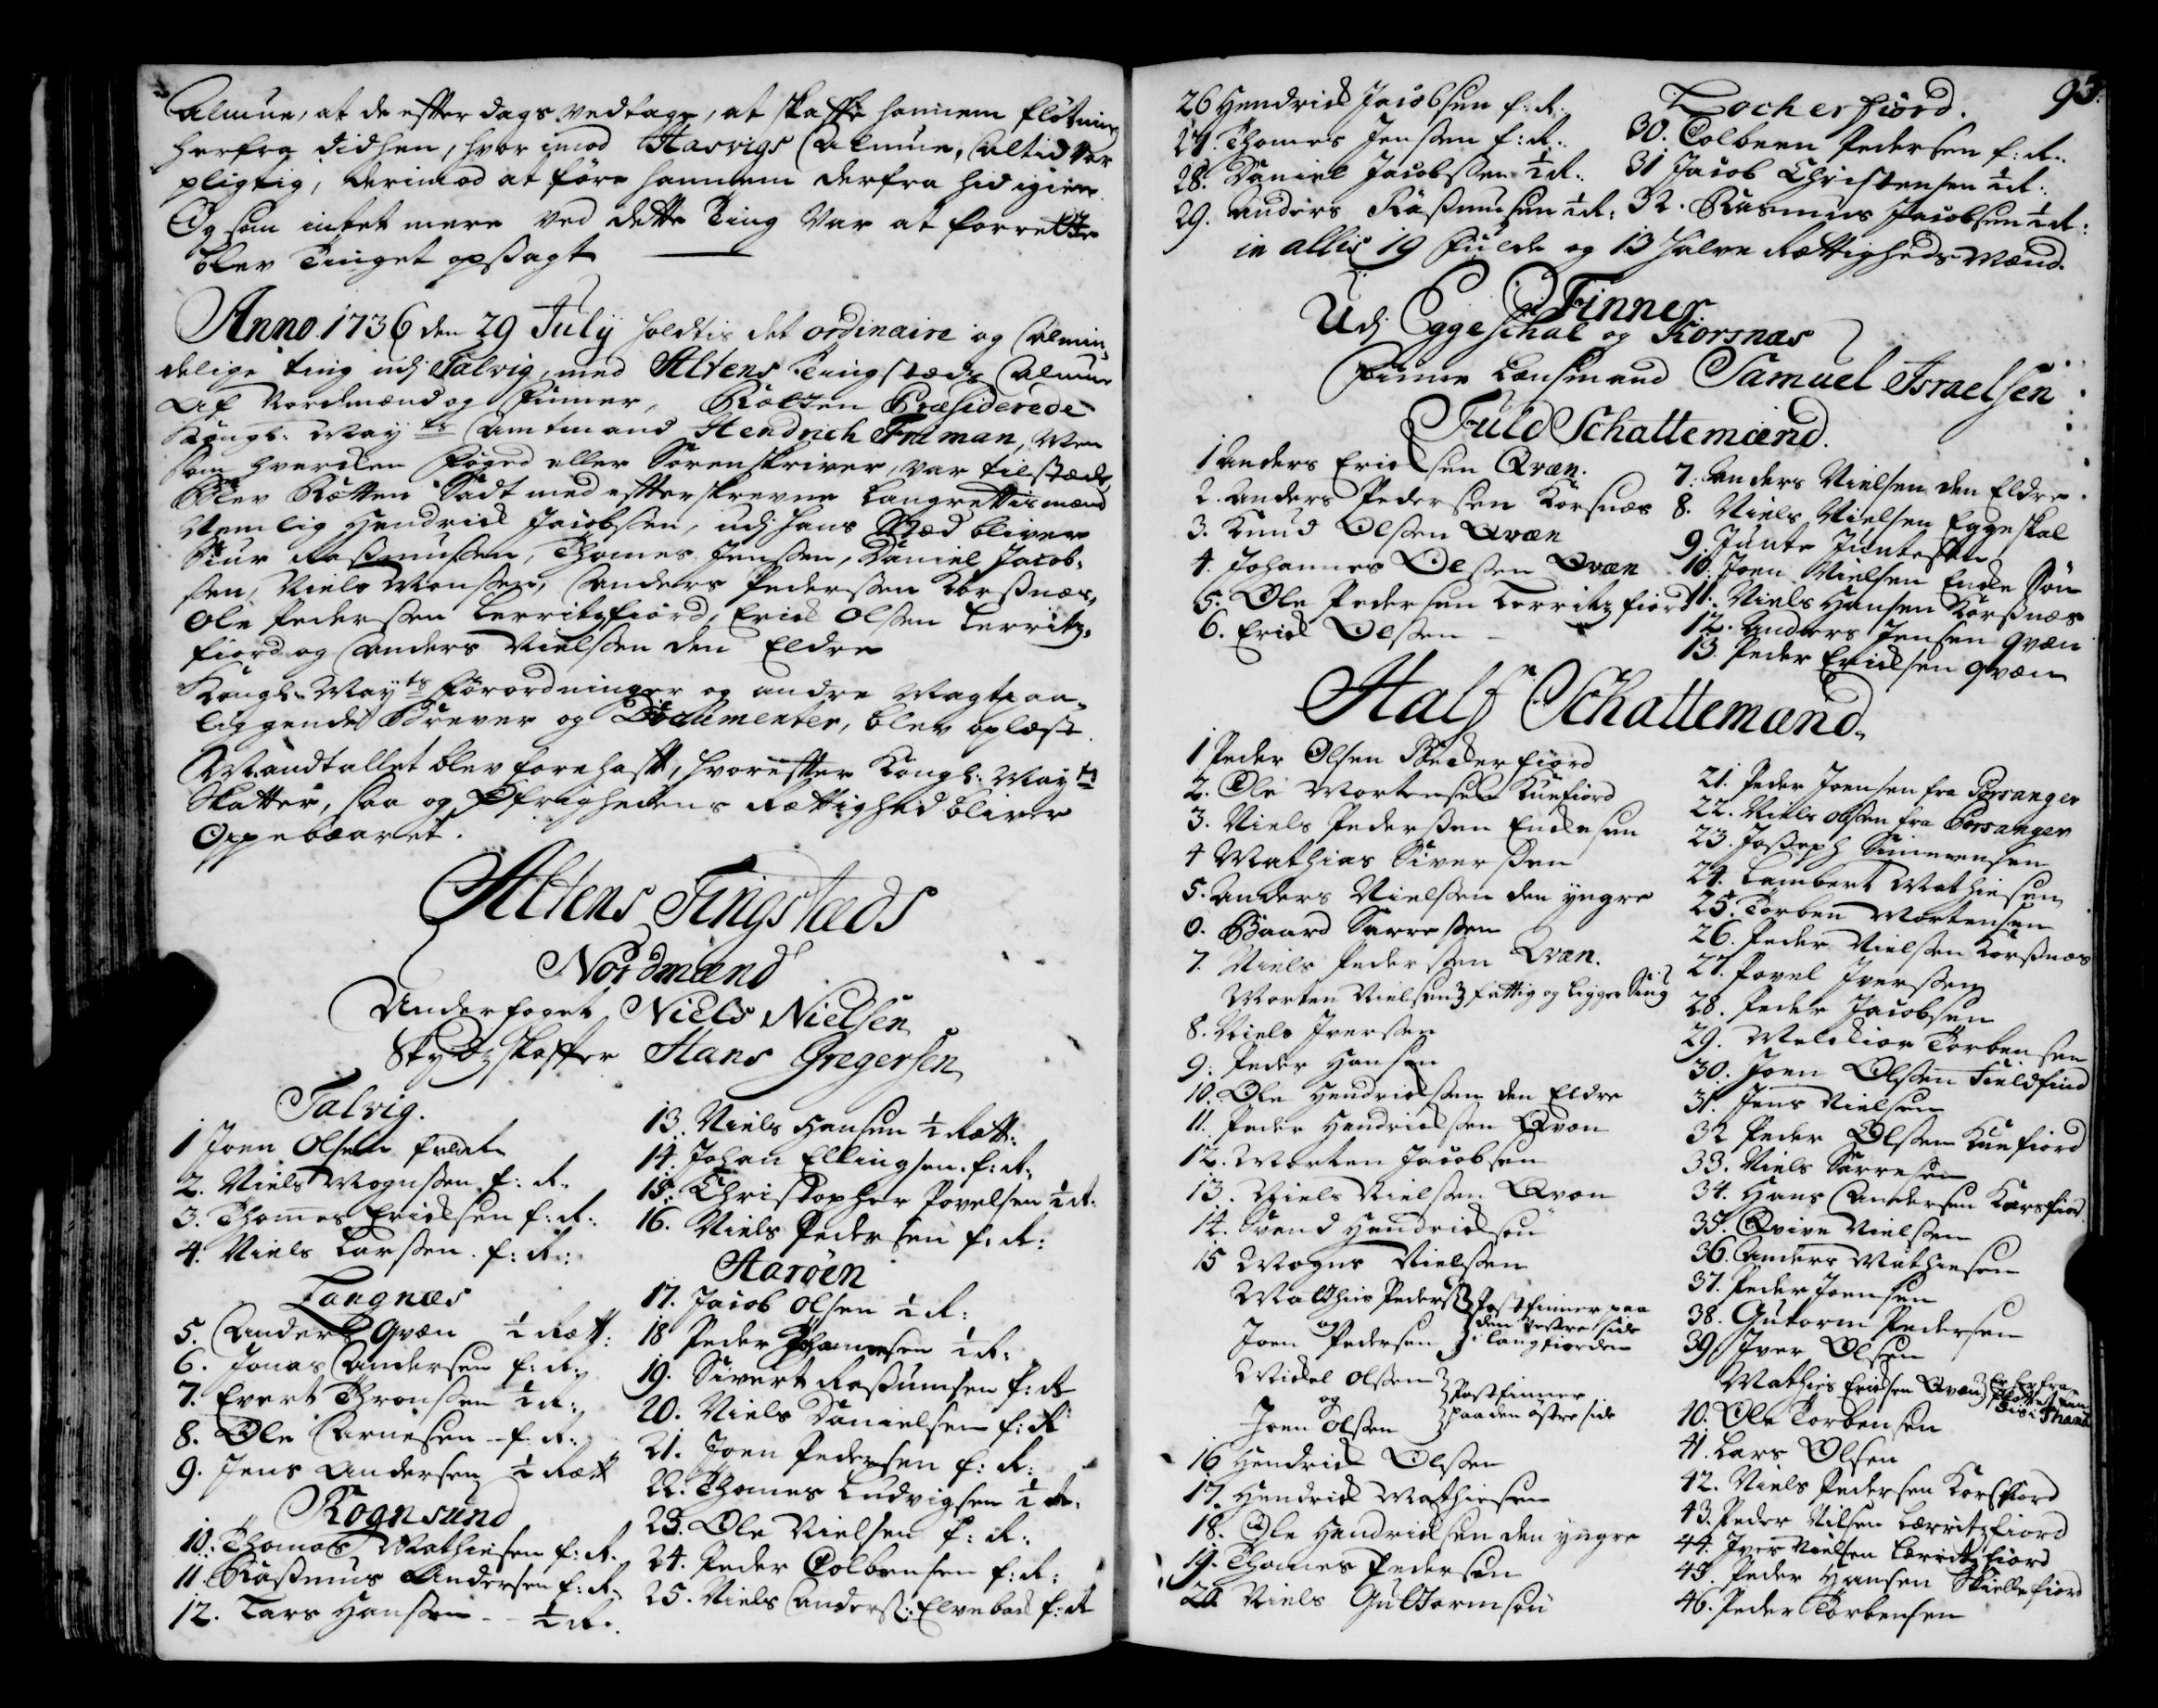 Almue, at de effter dags vedtagt, at skaffe hannem fløtning
herfra didhen, hvor imod Hasvigs Almue, altid var
pligtig, derimod at føre hannem derfra hid igien
Og som intet mere ved dette Ting var at forrette
blev Tinget opsagt
Anno 1736 den 29 July holdtis det ordinaire og Almin,
delige ting udj Talvig, med Altens Tingstæds Almue
Af Nordmænd og Finner, Rætten Præsiderede
Kongl: May ts Amtmand Hendrich Fruman, Men
som hverchen Foged eller Sorenskriver, var tilstæde,
Blev Rætten Sadt med effterskrevne Laugrettismænd
Nemlig Hendrich Jacobsen, udj hans Stæd bliver
Siur Rasmussen, Thomes Jenssen, Daniel Jacob,
sen, Niels Monssen, Anders Pederssen Korsnæs,
Ole Pederssen Lerritzfiord, Erich Olssen Lerritz,
fiord og Anders Nielssen den Eldre
Kongl. May ts Forordninger og andre Magt paa,
liggende Brever og Documenter, blev oplæst.
Mandtallet blev forehafft, hvoreffter Kongl: May ts
Skatter, saa og Øfrighedens Rættighed bliver
Oppebaaret.
Altens Tingstæds
Nordmænd
Underfoget Niels Nielsen
Skydzskaffer Hans Gregersen
Talvig.
1 Joen Olsen fuld R
2. Niels Mognssen f: R:
3. Thomes Erichsen f: R:
4. Niels Larssen. f: R:
Langnæs
5. Anders Qvæn ½ Rætt:
6. Jonas Andersen f: R:
7. Evert Thronssen ½ R:
8. Ole Arnesen - f: R:
9. Jens Andersen ½ Rætt
Rognsund
10. Thomas Mathiesen f: R.
11. Rasmus Andersen f: R:
12. Lars Hanssen - - ½ R:
13. Niels Hansen ½ Rætt:
14. Johan Ellingsen. f: R:
15. Christopher Povelsen ½ R:
16. Niels Pedersen f: R:
Aarøen
17. Jacob Olsen ½ R:
18 Peder Johannesen ½ R:
19. Sivert Rasmusen f: R
20. Niels Danielsen f: R
21. Joen Pedersen f: R:
22. Thomes Ludvigsen ½ R:
23. Ole Nielsen f: R:
24. Peder Colbensen f: R:
25. Niels Anderss: Elvebach f: R
95.
26 Hendrich Jacobsen f: R:
27. Thomes Jenssen f: R:
28. Daniel Jacobssen ½ R:
29. Anders Rasmusen ½ R:
Locherfiord.
30. Colbeen Pedersen f: R:
31 Jacob Christensen ½ R:
32. Rasmus Jacobsen ½ R:
in allis 19 Fulde og 13 Halve Rættigheds Mænd.
Finner
Udj Eggeschal og Korsnæs
Finne Lensmand Samuel Israelsen
Fuld Schattemænd.
1 Anders Erichsen Qvæn.
2. Anders Pederssen Korsnæs
3. Knud Olssen Qvæn
4. Johannes Olssen Qvæn
5. Ole Pedersen Lerritzfiord
6. Erich Olssen -
7. Anders Nielsen den Eldre
8. Niels Nielsen Eggeskal
9. Junte Juntesen
10. Joen Nielsen Ende Søn
11. Niels Hansen Korssnæs
12. Anders Jensen qvæn
13. Peder Erichsen qvæn
Half Schattemænd.
1 Peder Olsen Rederfiord
2. Ole Mortensen Kuefiord
3. Niels Pederssen Endesen
4 Mathias Siverssen
5. Anders Nielssen den yngre
6. Baard Sarressen
7. Niels Pederssen Qvæn.
Morten Nielsen } fattig og ligger Siug
8. Niels Iverssen
9. Peder Hansen
10. Ole Hendrichssen den Eldre
11. Peder Hendrichssen Qvæn
12. Morten Jacobsen
13. Niels Nielssen Qvæn
14. Svend Hendrichsen
15 Mogns Nielssen
Matthis Peders
og
Joen Pedersen } Postfinner paa
den Vestre side
i langfiorden
Michel Olssen
og
Joen Olssen } Postfinner
paa den østre side
16 Hendrich Olssen
17. Hendrich Mathiesen
18. Ole Hendrichsen den yngre
19. Thomes Pedersen
20. Niels Guttormsen
21. Peder Joensen fra Porsanger
22. Niels Olssen fra Porsanger
23. Joseph Simmensen
24. Lambert Mathiesen
25. Torben Mortensen
26. Peder Nielssen Korssnæs
27. Povel Iverssen
28. Peder Jacobsen
29. Melchior Torbensen
30. Joen Olssen Fieldfind
31. Jens Nielsen
32 Peder Olssen Kuefiord
33. Niels Sarresen
34. Hans Andersen Korsfior
35. Qvive Nielssen
36. Anders Mathiesen
37. Peder Joensen
38. Gutorm Pedersen
39. Iver Olsen
Mathis Erichsen Qvæn } er herfra
40. Ole Torbensen
41. Lars Olsen
42. Niels Pedersen Korsfiord
43. Peder Nilsen Lerritzfiord
44. Iver Nielsen Lerritzfiord
45. Peder Hansen Skiellefiord
46. Peder Torbensen